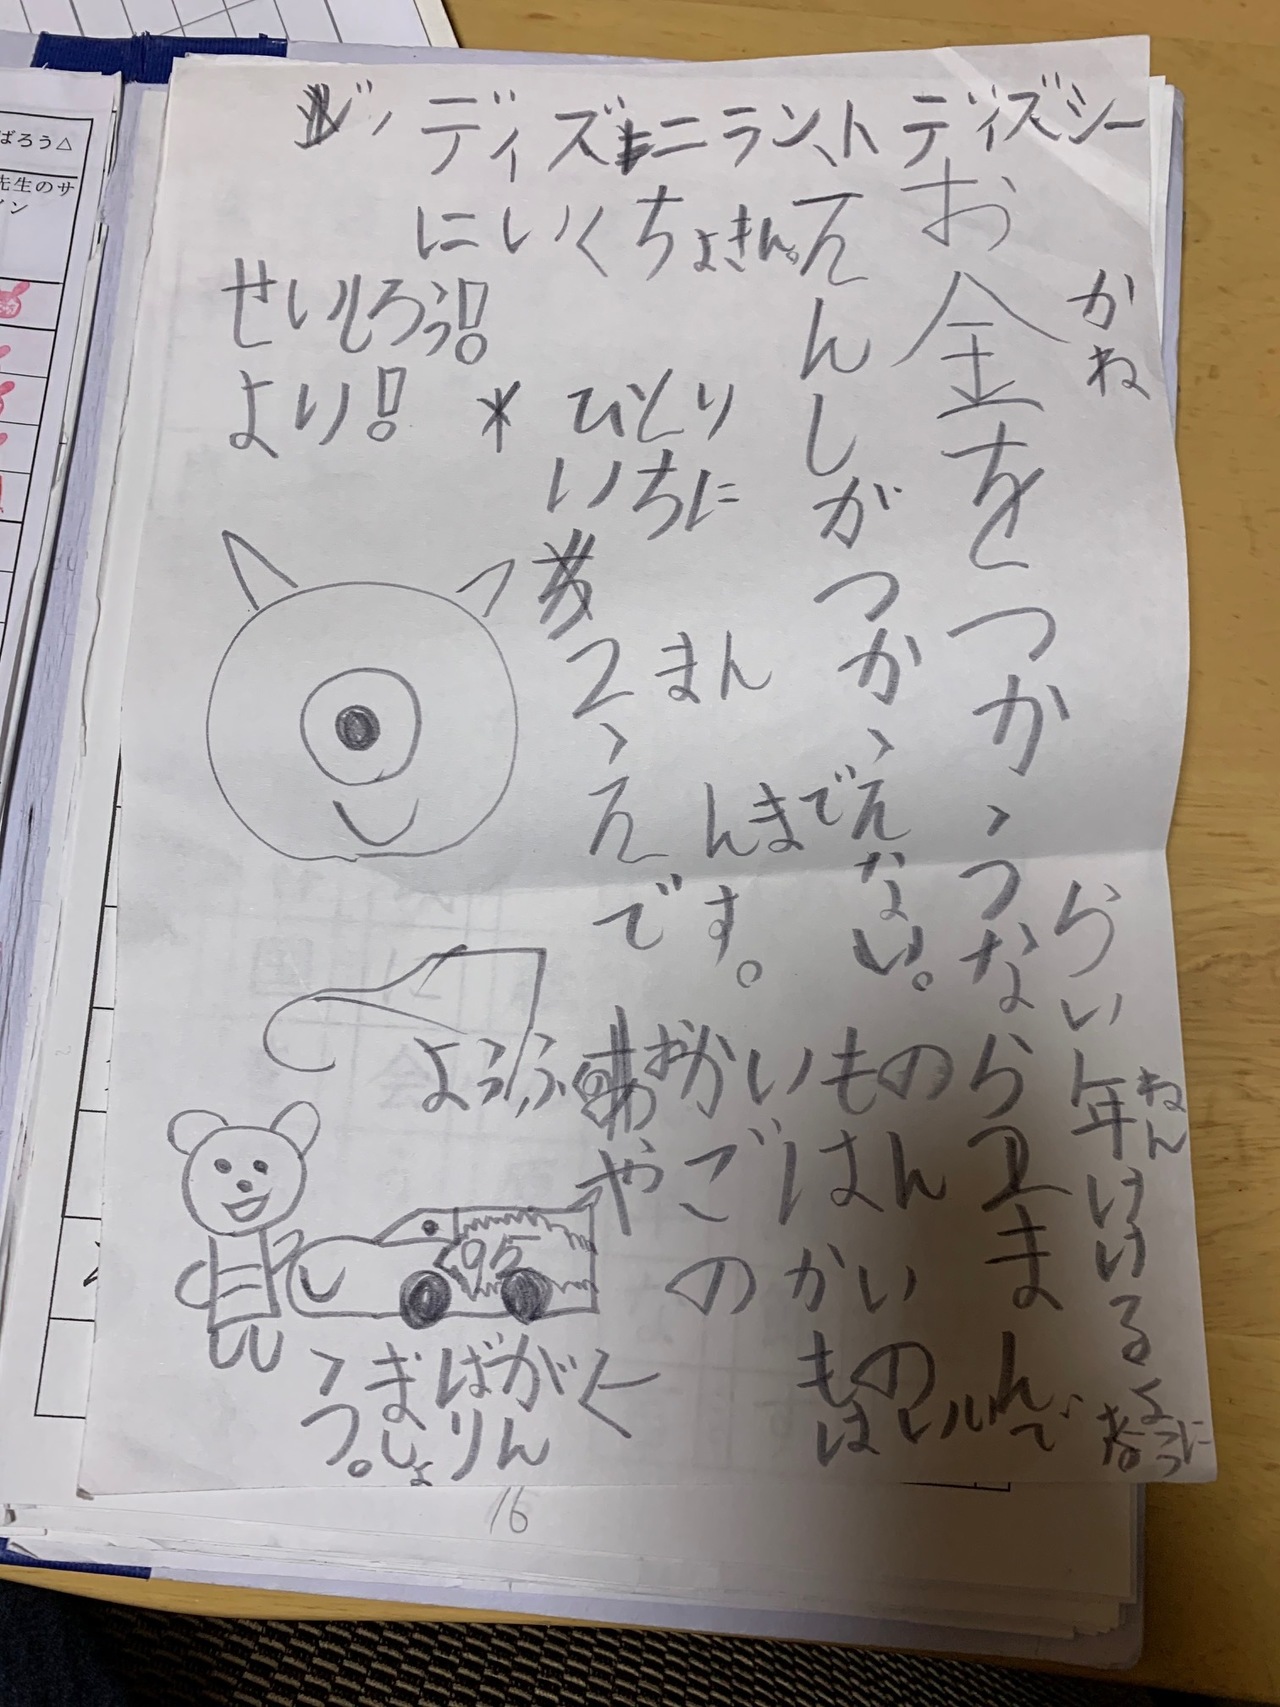 ディズニーランド ディズシー
にいくちょきん。
かね
お金をつか、うなら2まんで
えんしがつか、えない。
らい年いけるように
ねん
せいしろう!
より!
* ひとり
いちに
2まん
、えんまで
です。
おかいもの
ようふ
やごはん
のかい
ものはいい
95
がんばりましょう。
ばろう△
先生のサ
イン
16